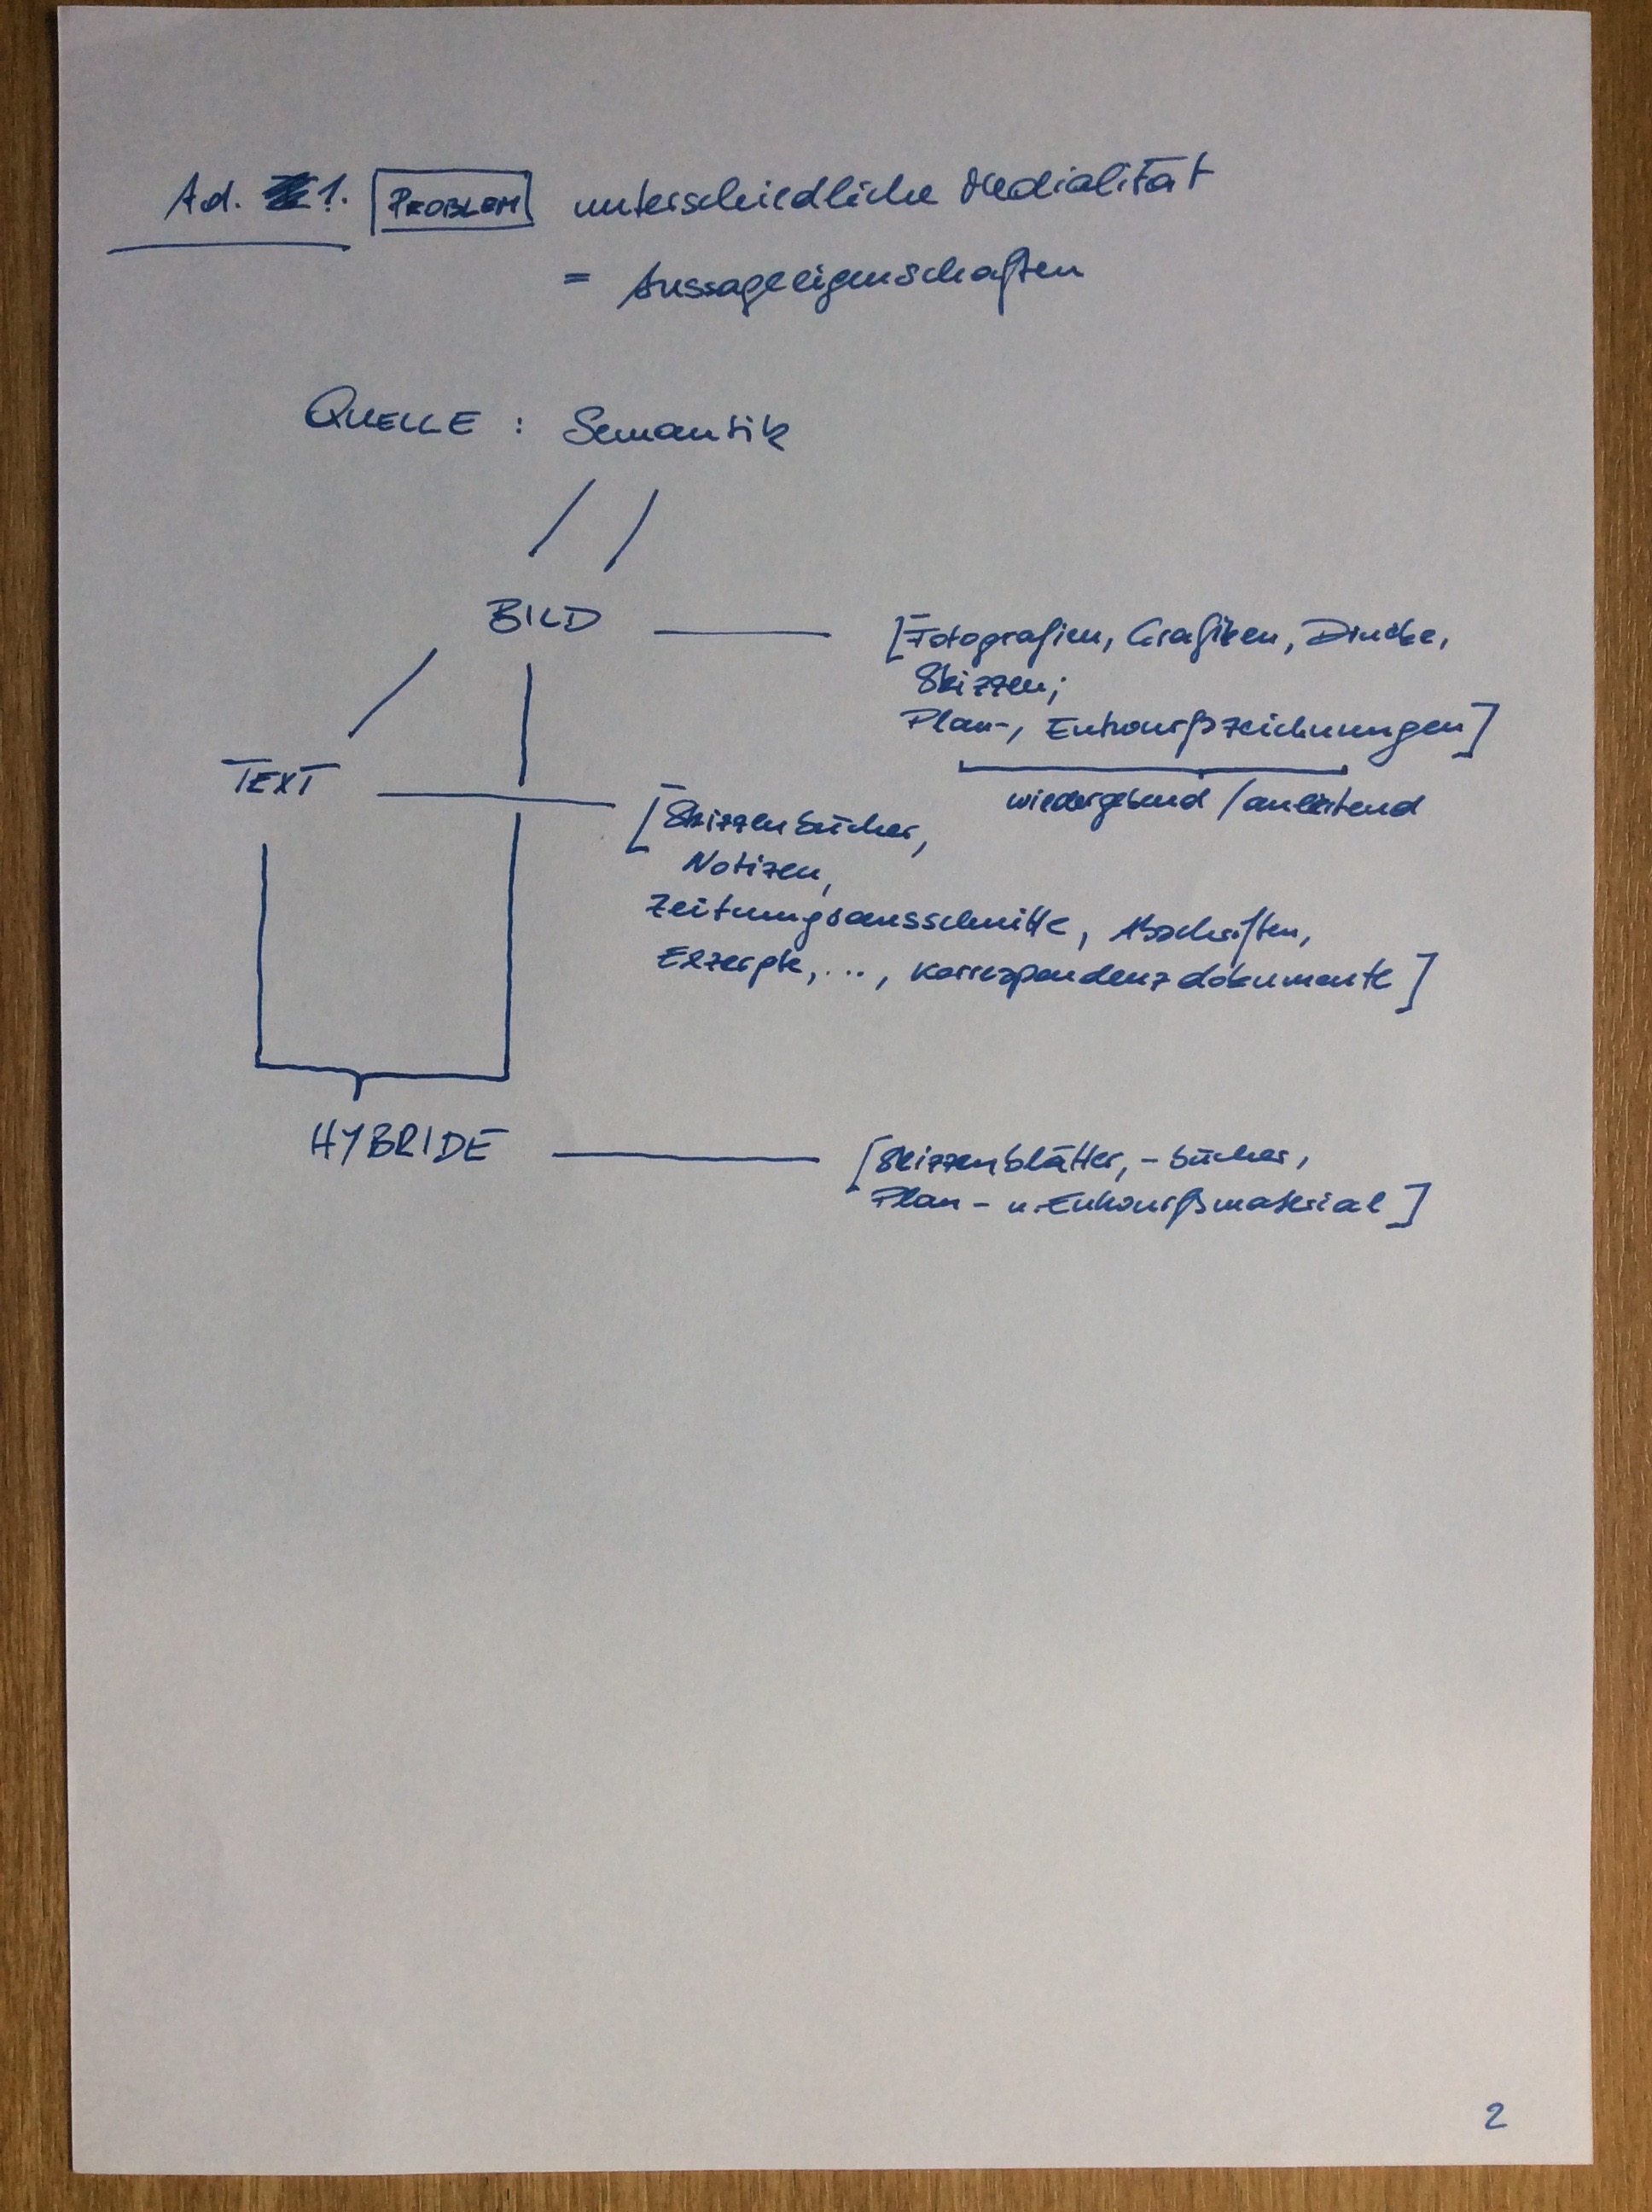 Ad. 1. PROBLEM unterschiedliche Medialität
= Aussageeigenschaften
QUELLE : Semantik
BILD
[Fotografien, Grafiken, Drucke,
Skizzen;
Plan-, Entwurfszeichnungen]
wiedergebend / anleitend
TEXT
[Skizzenbücher,
Notizen,
Zeitungsausschnitte, Abschriften,
Exzerpte, ..., Korrespondenzdokumente]
HYBRIDE
[Skizzenblätter, -bücher,
Plan- u. Entwurfsmaterial]
2